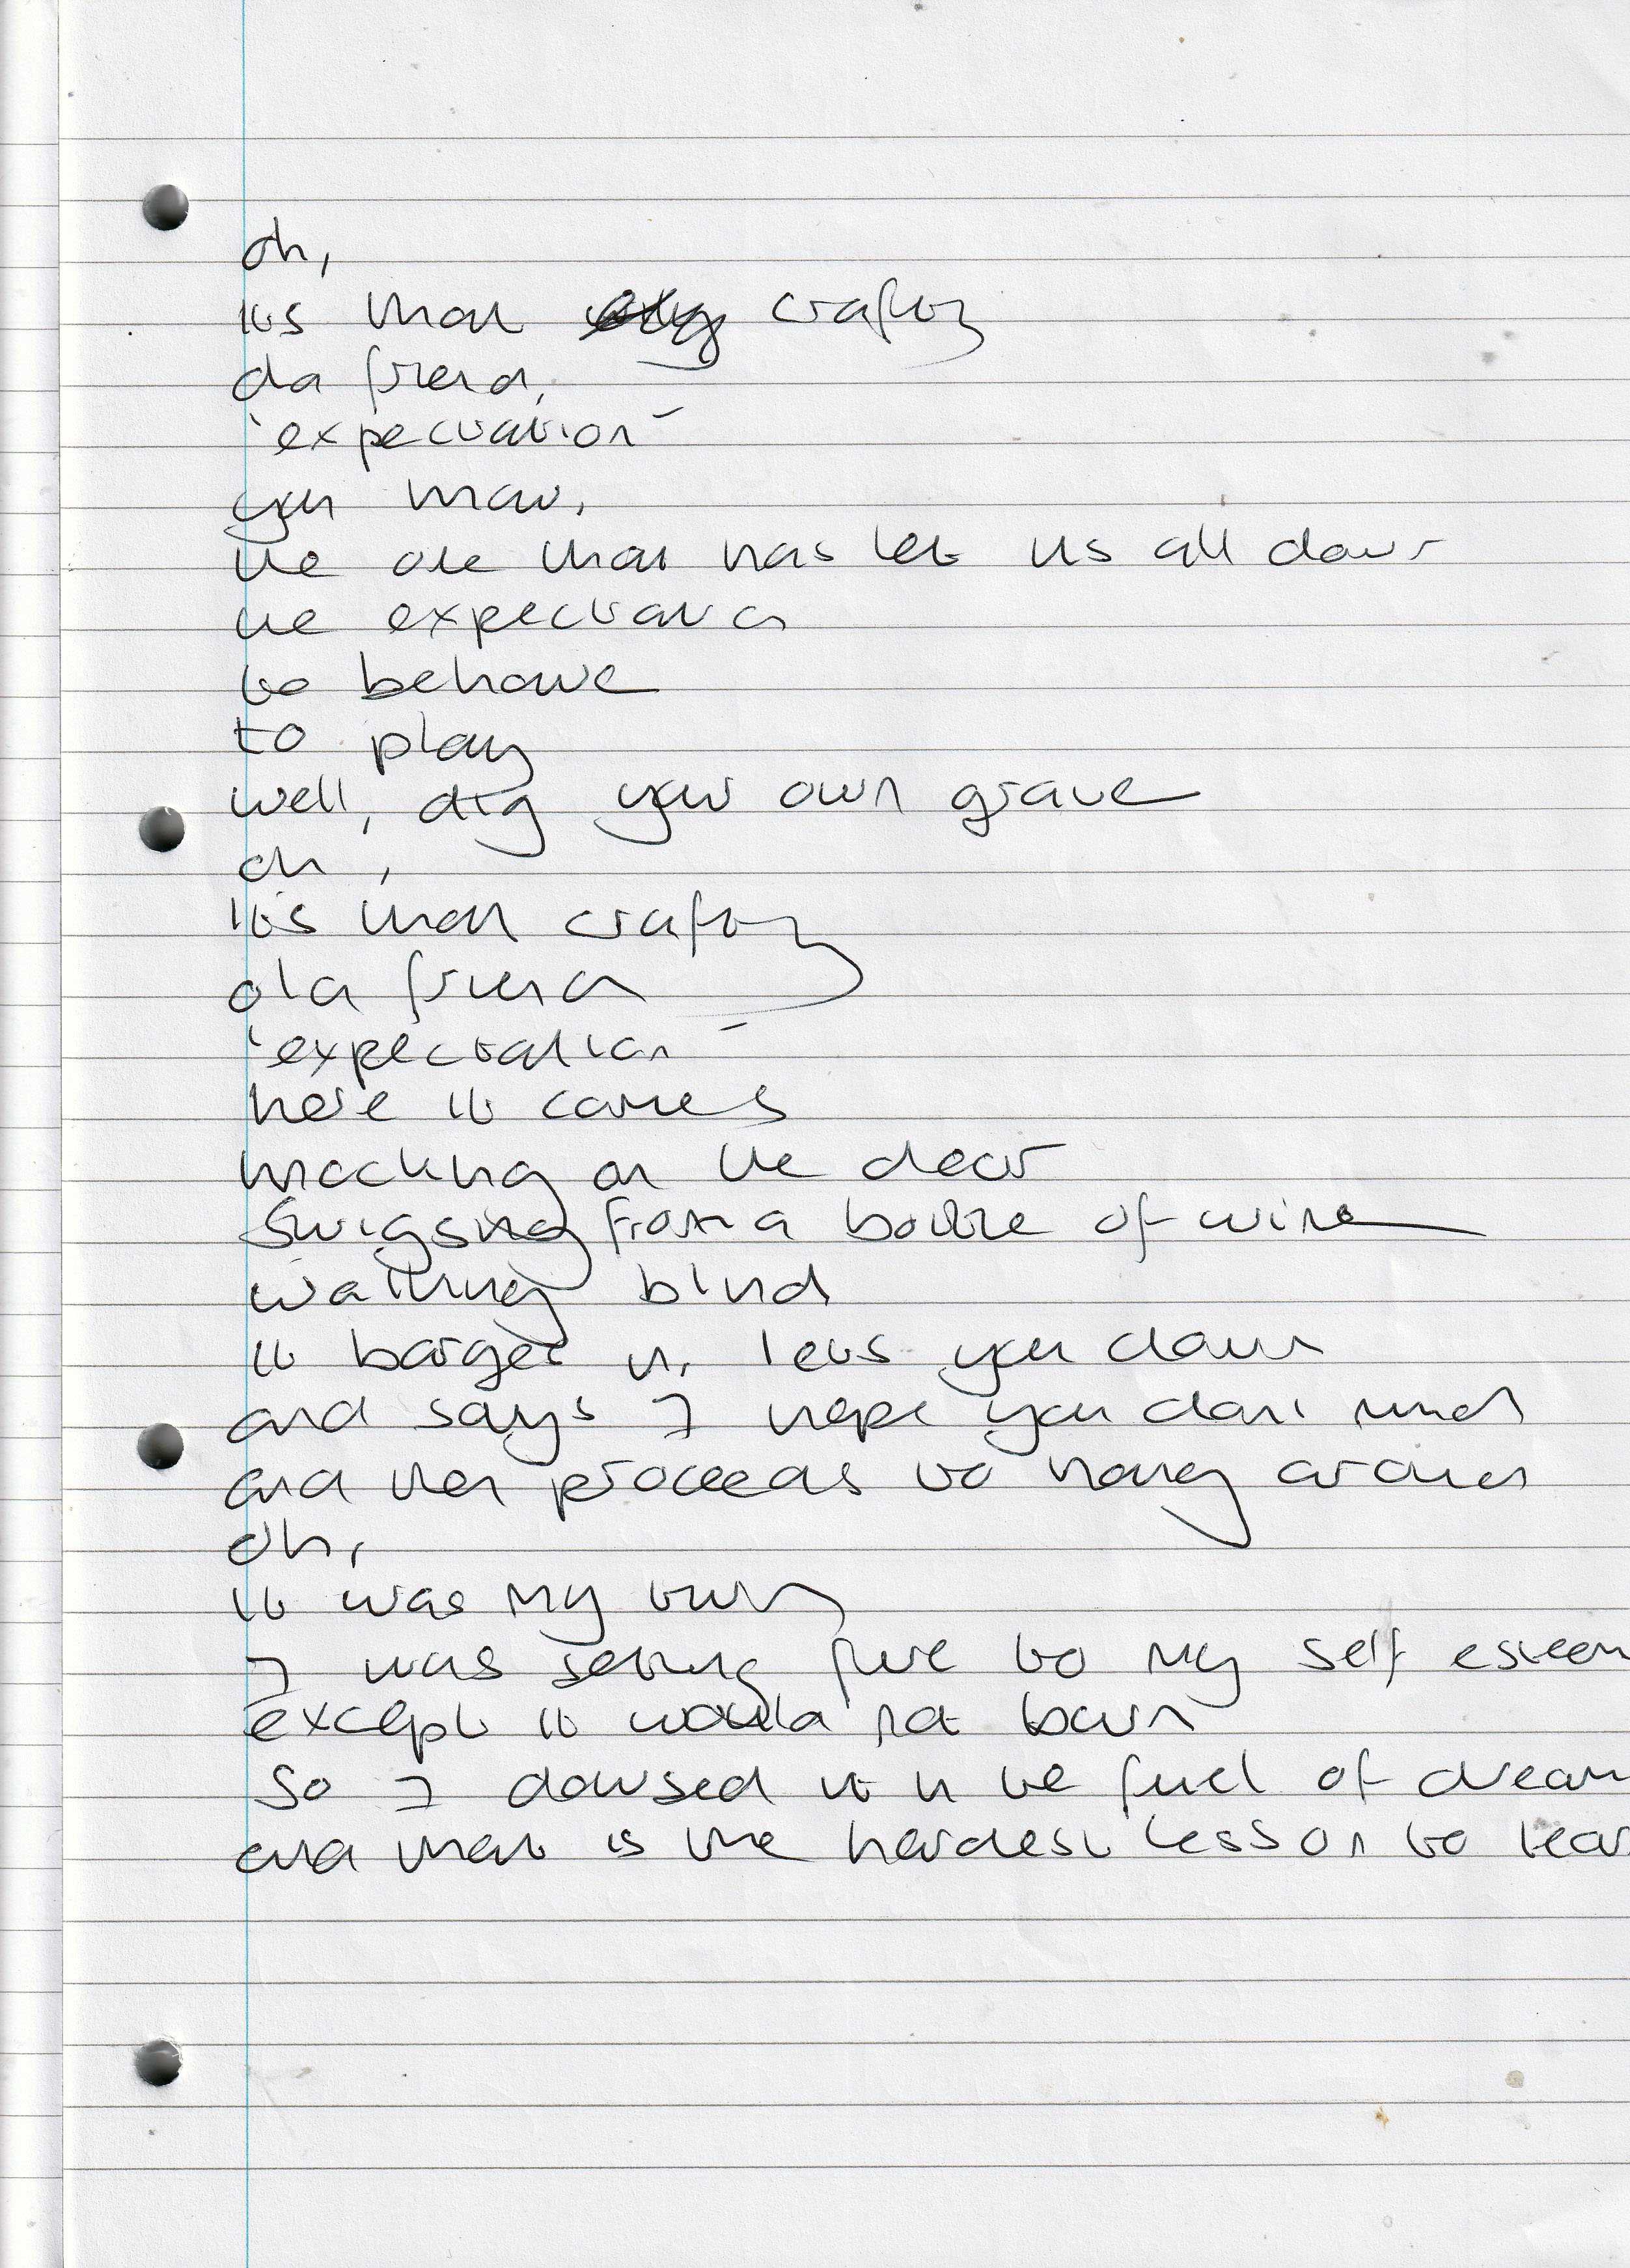 oh,
its that crafty
old friend,
'expectation'
you know,
the one that has let us all down
the expectation
to behave
to play
well, dig your own grave
oh,
it's that crafty
old friend
'expectation'
here it comes
knocking on the door
swigging from a bottle of wine
walking blind
it barges in, lets you down
and says I hope you don't mind
and then proceeds to hang around
oh,
it was my turn
I was setting fire to my self esteem
except it would not burn
So I dowsed it in the fuel of dream
and that is the hardest lesson to lear